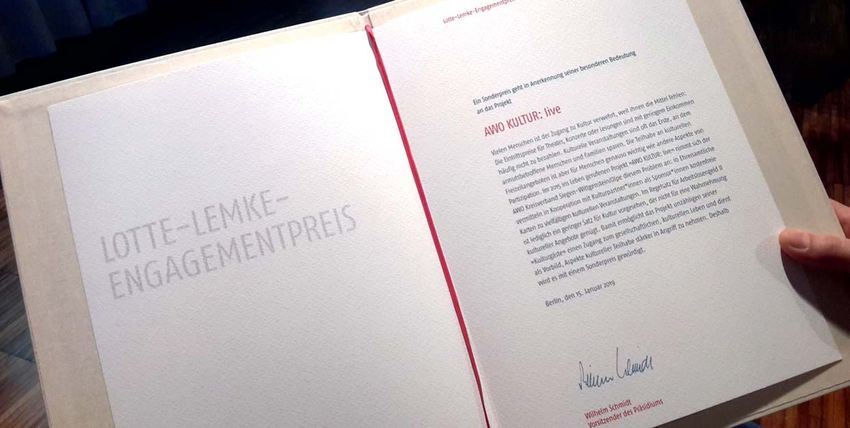 LOTTE-LEMKE-
ENGAGEMENTPREIS
Lotte-Lemke-Engagementpreis
Ein Sonderpreis geht in Anerkennung seiner besonderen Bedeutung
an das Projekt
AWO KULTUR: live
Vielen Menschen ist der Zugang zu Kultur verwehrt, weil ihnen die Mittel fehlen:
Die Eintrittspreise für Theater, Konzerte oder Lesungen sind mit geringem Einkommen
häufig nicht zu bezahlen. Kulturelle Veranstaltungen sind oft das Erste, an dem
armutsbetroffene Menschen und Familien sparen. Die Teilhabe an kulturellen
Freizeitangeboten ist aber für Menschen genauso wichtig wie andere Aspekte von
Partizipation. Im 2015 ins Leben gerufenen Projekt »AWO KULTUR: live« nimmt sich der
AWO Kreisverband Siegen-Wittgenstein/Olpe diesem Problem an: 10 Ehrenamtliche
vermitteln in Kooperation mit Kulturpartner*innen als Sponsor*innen kostenfreie
Karten zu vielfältigen kulturellen Veranstaltungen. Im Regelsatz für Arbeitslosengeld II
ist lediglich ein geringer Satz für Kultur vorgesehen, der nicht für eine Wahrnehmung
kultureller Angebote genügt. Damit ermöglicht das Projekt unzähligen seiner
»Kulturgäste« einen Zugang zum gesellschaftlichen, kulturellen Leben und dient
als Vorbild, Aspekte Kultureller Teilhabe stärker in Angriff zu nehmen. Deshalb
wird es mit einem Sonderpreis gewürdigt.
Berlin, den 15. Januar 2019
Wilhelm Schmidt
Vorsitzender des Präsidiums